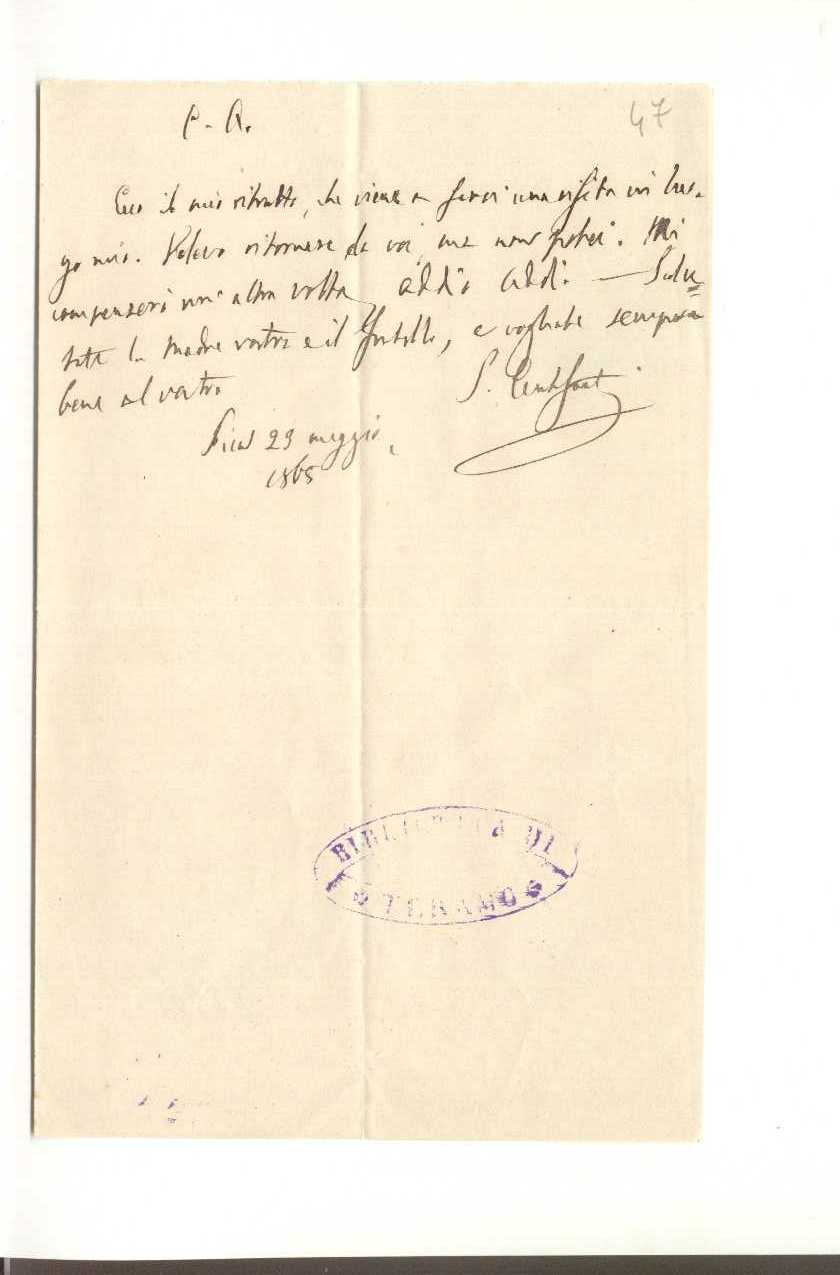 C. A.
47
Ecco il mio ritratto, che viene a farvi una visita in luo-
go mio. Volevo ritornare da voi, ma non potei. Mi
compenserò un'altra volta, addio addio — Salu=
tate la madre vostra e il fratello, e vogliate sempre
bene al vostro
S. Centofanti
Pisa 29 maggio,
1865
BIBLIOTECA DI
TERAMO